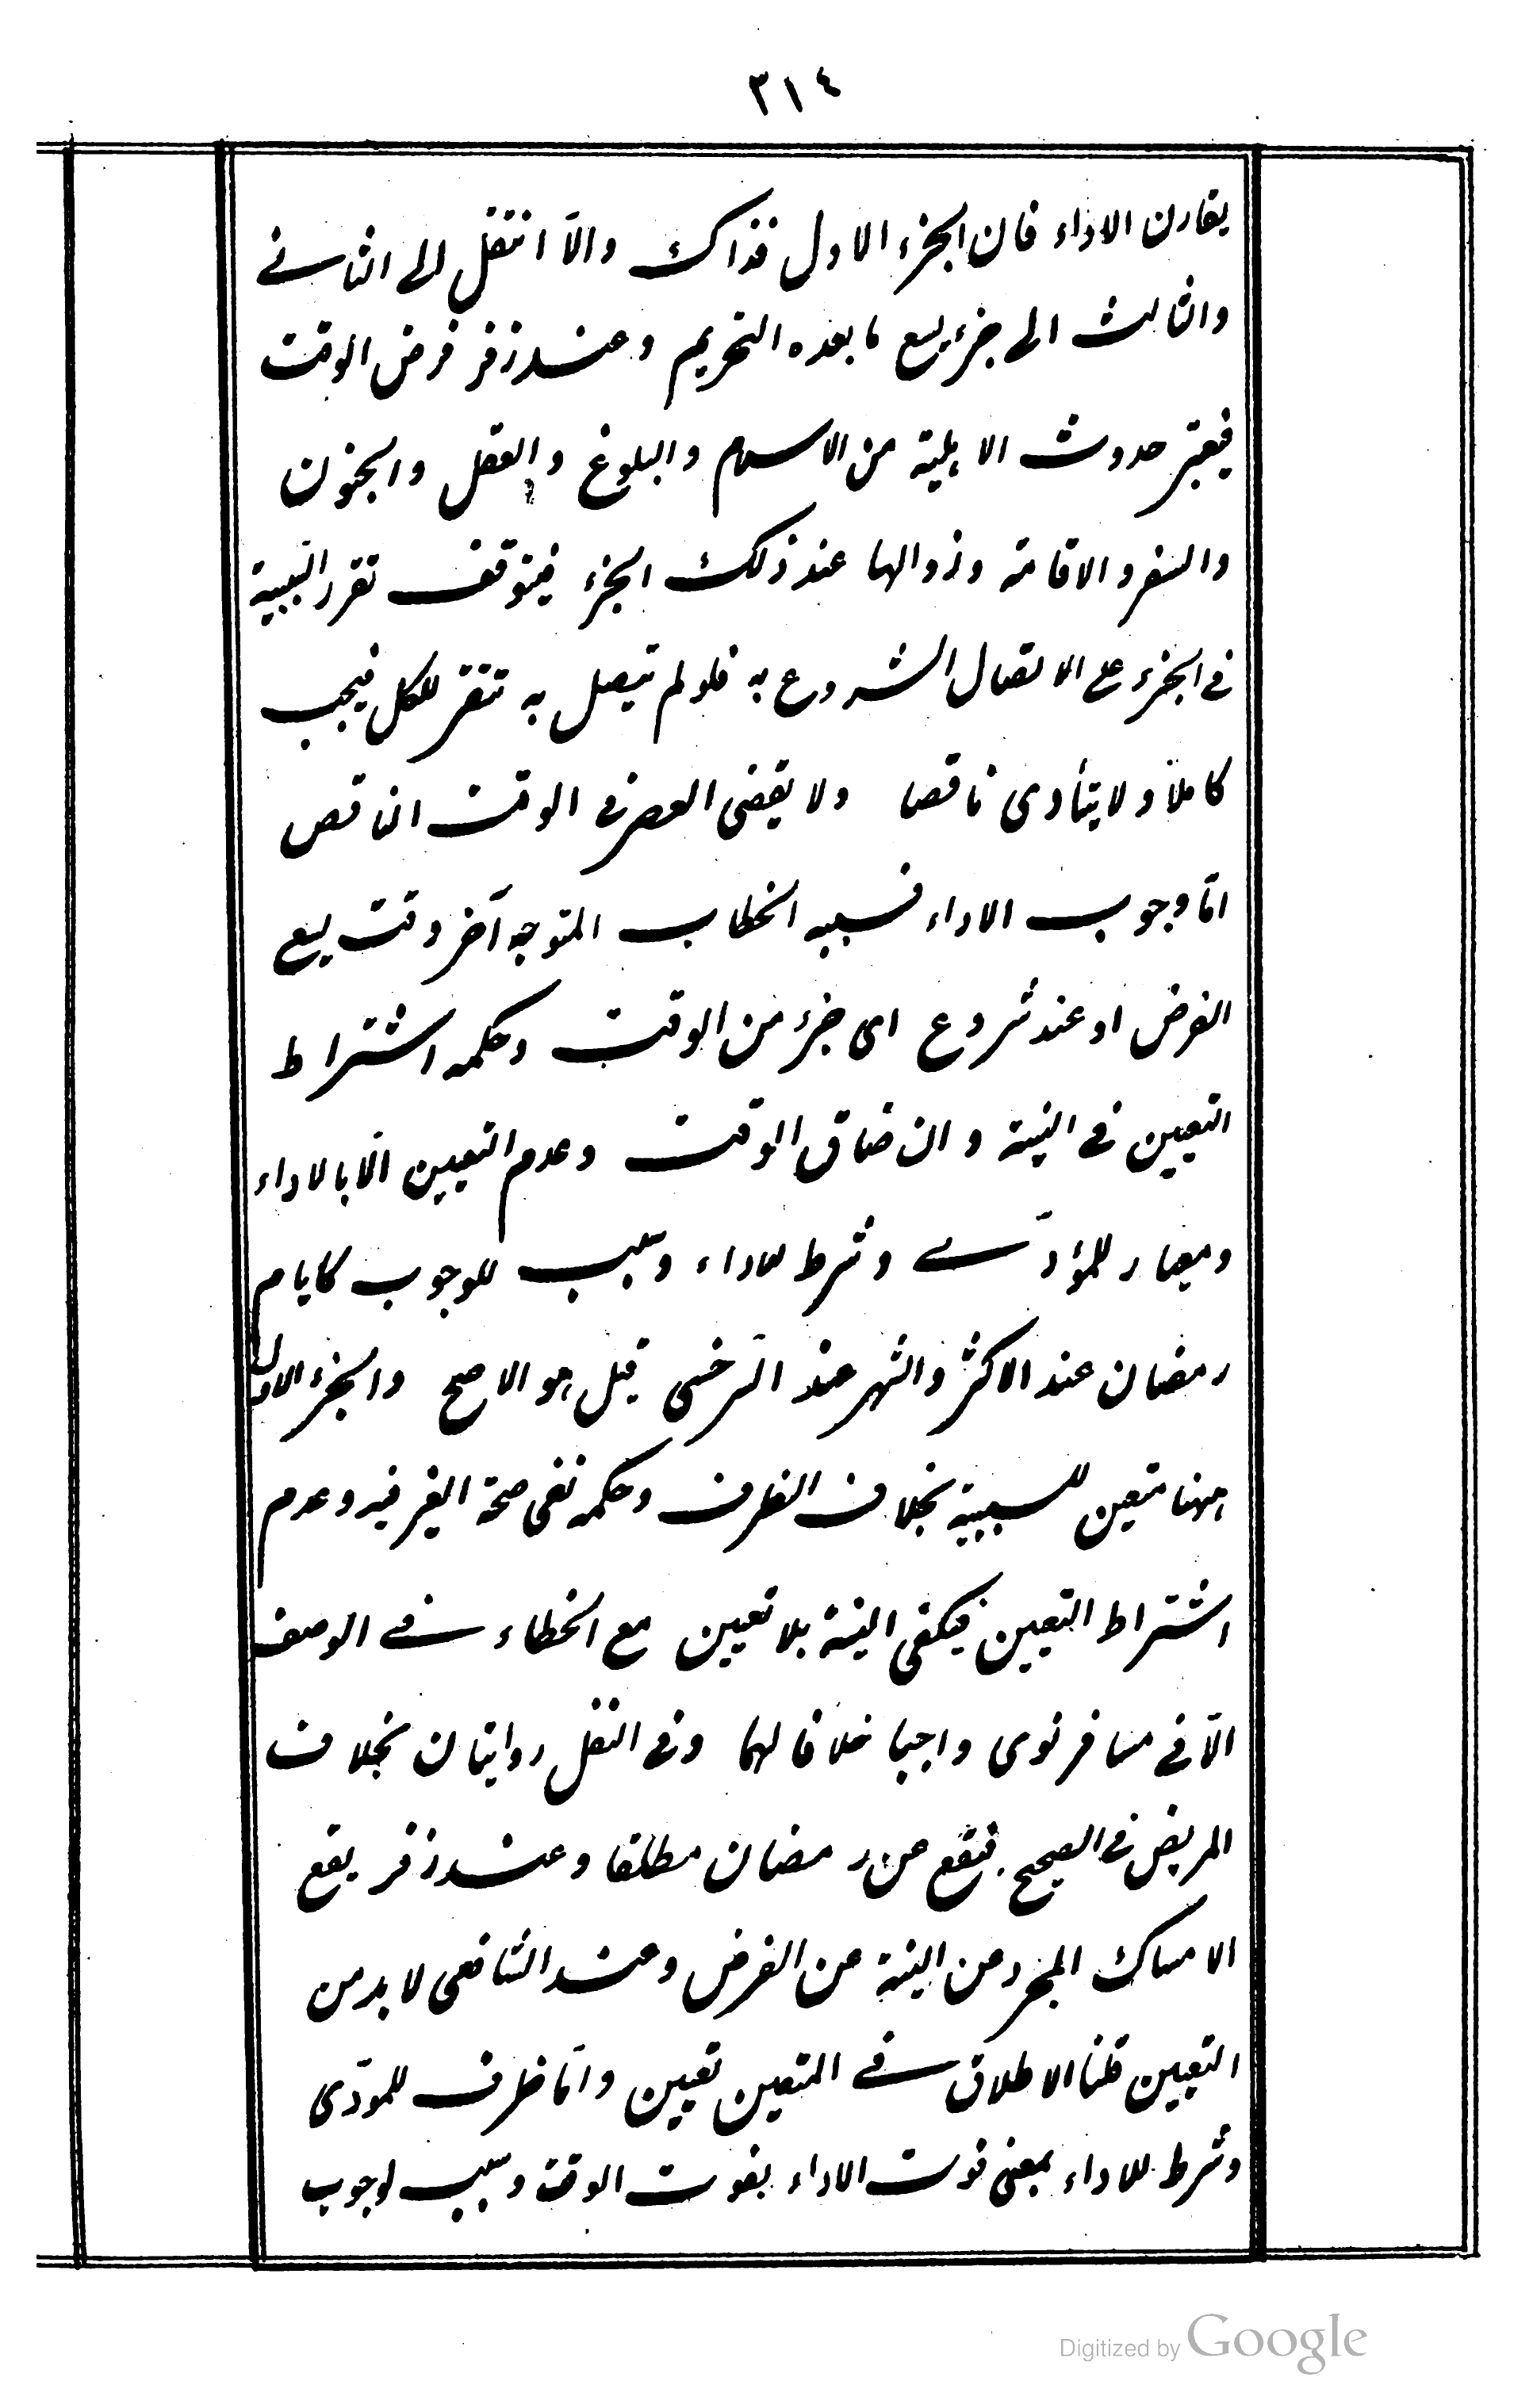 ٣١٤
يقارن الاداء فان الجزء الاول فذاك والّا انتقل الى الثانے
والثالث الى جزء يسع ما بعده التحريم وعند زفر فرض الوقت
فيعتبر حدوث الاهلية من الاسلام والبلوغ والعقل والجنون
والسفر والاقامة وزوالها عند ذلك الجزء فيتوقف تقرر السببية
فى الجزء على الاتصال الشروع به فلو لم يتصل به تتقرر للكل فيجب
كاملاً ولا يتأدى ناقصا ولا يقضى العصر فى الوقت الناقص
امّا وجوب الاداء فسببه الخطاب المتوجه آخر وقت يسع
الفرض او عند شروع اى جزء من الوقت وحكمه اشتراط
التعيين فى النية وان ضاق الوقت وعدم التعيين الّا بالاداء
ومعيار للمؤدّے وشرط للاداء وسبب للوجوب كايام
رمضان عند الاكثر والشهر عند السّرخسى قيل هو الاصح والجزء الاول
ههنا متعين للسببية بخلاف الظرف وحكمه نفى صحة الغير فيه وعدم
اشتراط التعيين فيكفى النية بلا تعيين مع الخطاء فے الوصف
الّا فى مسافر نوى واجبا خلافا لهما وفى النفل روايتان بخلاف
المريض فى الصحيح فيقع عن رمضان مطلقا وعند زفر يقع
الامساك المجرد عن النية عن الفرض وعند الشافعى لا بد من
التعيين قلنا الاطلاق فے المتعين تعيين وامّا ظرف للمودّى
وشرط للاداء بمعنى فوت الاداء بفوت الوقت وسبب لوجوب
Digitized by Google